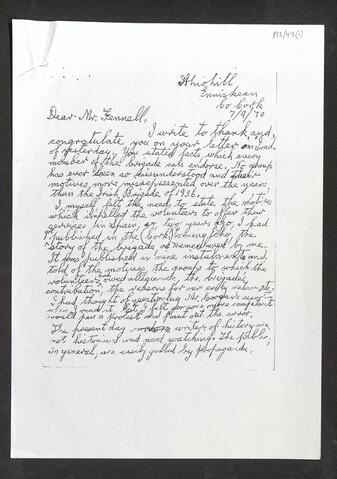 P13/47(1)
Ahiohill
Enniskean
Co Cork
7/9/70
Dear Mr. Fennell,
I write to thank and
congratulate you on your letter in Ind.
of yesterday. You stated facts which every
member of the brigade can endorse. No group
has ever been so misunderstood and their
motives more misrepresented over the years,
than the Irish Brigade of 1936.
I myself felt the need to state the motives
which impelled the volunteers to offer their
services in Spain, so, two years ago, I had
published in the Cork Evening Echo, the
story of the brigade, as viewed by me.
It was published in nine instalments and
told of the motives, the groups to which the
volunteers owed allegiance, the brigade's
contribution, the reasons for our early return, etc.
I had thought of questioning Mr. assertion
when I read it, but I felt someone more competent
would pen a protest and point out the error.
The present day writers of history are
not historians and need watching. The public,
in general, are easily gulled by propaganda,